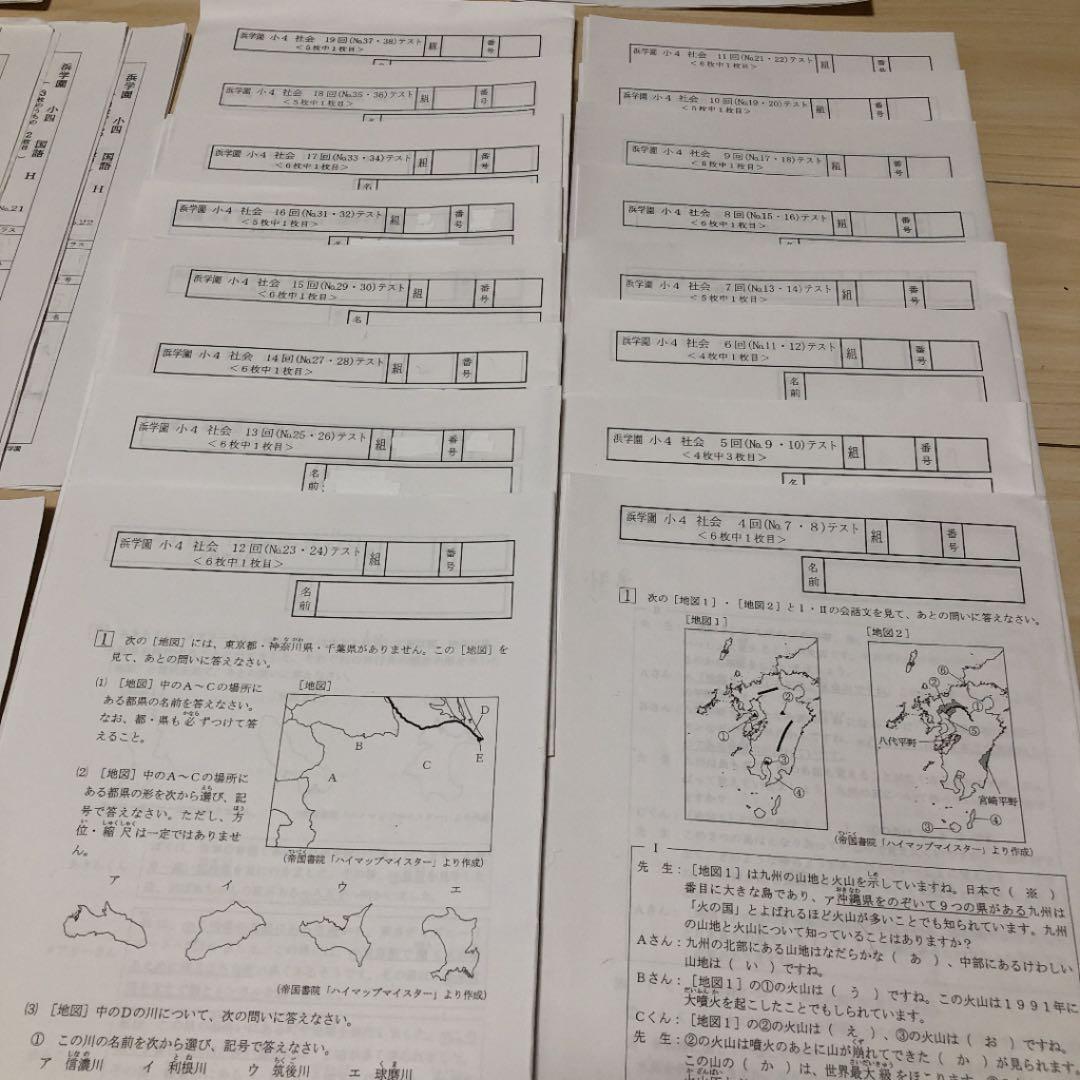 浜学園 小四 国語 H
(3枚のうちの 2枚目)
No.21
浜学園 小四 国語 H
浜学園 小4 社会 19回(No.37・38)テスト 組 番号
＜6枚中1枚目＞
浜学園 小4 社会 18回(No.35・36)テスト 組 番号
＜5枚中1枚目＞
浜学園 小4 社会 17回(No.33・34)テスト 組 番号
＜6枚中1枚目＞
名
浜学園 小4 社会 16回(No.31・32)テスト 組 番号
＜5枚中1枚目＞
浜学園 小4 社会 15回(No.29・30)テスト 組 番号
＜6枚中1枚目＞
名
浜学園 小4 社会 14回(No.27・28)テスト 組 番号
＜6枚中1枚目＞
浜学園 小4 社会 13回(No.25・26)テスト 組 番号
＜6枚中1枚目＞
名前
浜学園 小4 社会 12回(No.23・24)テスト 組 番号
＜6枚中1枚目＞
名前
1 次の［地図］には、東京都・神奈川県・千葉県がありません。この［地図］を
見て、あとの問いに答えなさい。
(1) ［地図］中のA～Cの場所に
ある都県の名前を答えなさい。
なお、都・県も必ずつけて答
えること。
(2) ［地図］中のA～Cの場所に
ある都県の形を次から選び、記
号で答えなさい。ただし、方
位・縮尺は一定ではありませ
ん。
［地図］
A
B
C
D
E
(帝国書院「ハイマップマイスター」より作成)
ア イ ウ エ
(帝国書院「ハイマップマイスター」より作成)
(3) ［地図］中のDの川について、次の問いに答えなさい。
① この川の名前を次から選び、記号で答えなさい。
ア 信濃川 イ 利根川 ウ 筑後川 エ 球磨川
浜学園 小4 社会 11回(No.21・22)テスト 組 番号
＜6枚中1枚目＞
浜学園 小4 社会 10回(No.19・20)テスト 組 番号
＜5枚中1枚目＞
浜学園 小4 社会 9回(No.17・18)テスト 組 番号
＜6枚中1枚目＞
浜学園 小4 社会 8回(No.15・16)テスト 組 番号
＜6枚中1枚目＞
浜学園 小4 社会 7回(No.13・14)テスト 組 番号
＜5枚中1枚目＞
浜学園 小4 社会 6回(No.11・12)テスト 組 番号
＜4枚中1枚目＞
名前
浜学園 小4 社会 5回(No.9・10)テスト 組 番号
＜4枚中3枚目＞
浜学園 小4 社会 4回(No.7・8)テスト 組 番号
＜6枚中1枚目＞
名前
1 次の［地図1］・［地図2］とⅠ・Ⅱの会話文を見て、あとの問いに答えなさい。
［地図1］
① ② ③ ④
［地図2］
⑥ ② ① ⑤
八代平野
宮崎平野
③ ④
(帝国書院「ハイマップマイスター」より作成)
Ⅰ
先 生：［地図1］は九州の山地と火山を示していますね。日本で（ ※ ）
番目に大きな島であり、ァ沖縄県をのぞいて9つの県がある九州は
「火の国」とよばれるほど火山が多いことでも知られています。九州
の山地と火山について知っていることはありますか？
Aさん：九州の北部にある山地はなだらかな（ あ ）、中部にあるけわしい
山地は（ い ）ですね。
Bさん：［地図1］の①の火山は（ う ）ですね。この火山は1991年に
大噴火を起こしたことでもしられています。
Cくん：［地図1］の②の火山は（ え ）、③の火山は（ お ）ですね。
先 生：②の火山は噴火のあとに山が崩れてできた（ か ）が見られます。
この山の（ か ）は、世界最大級をほこります。